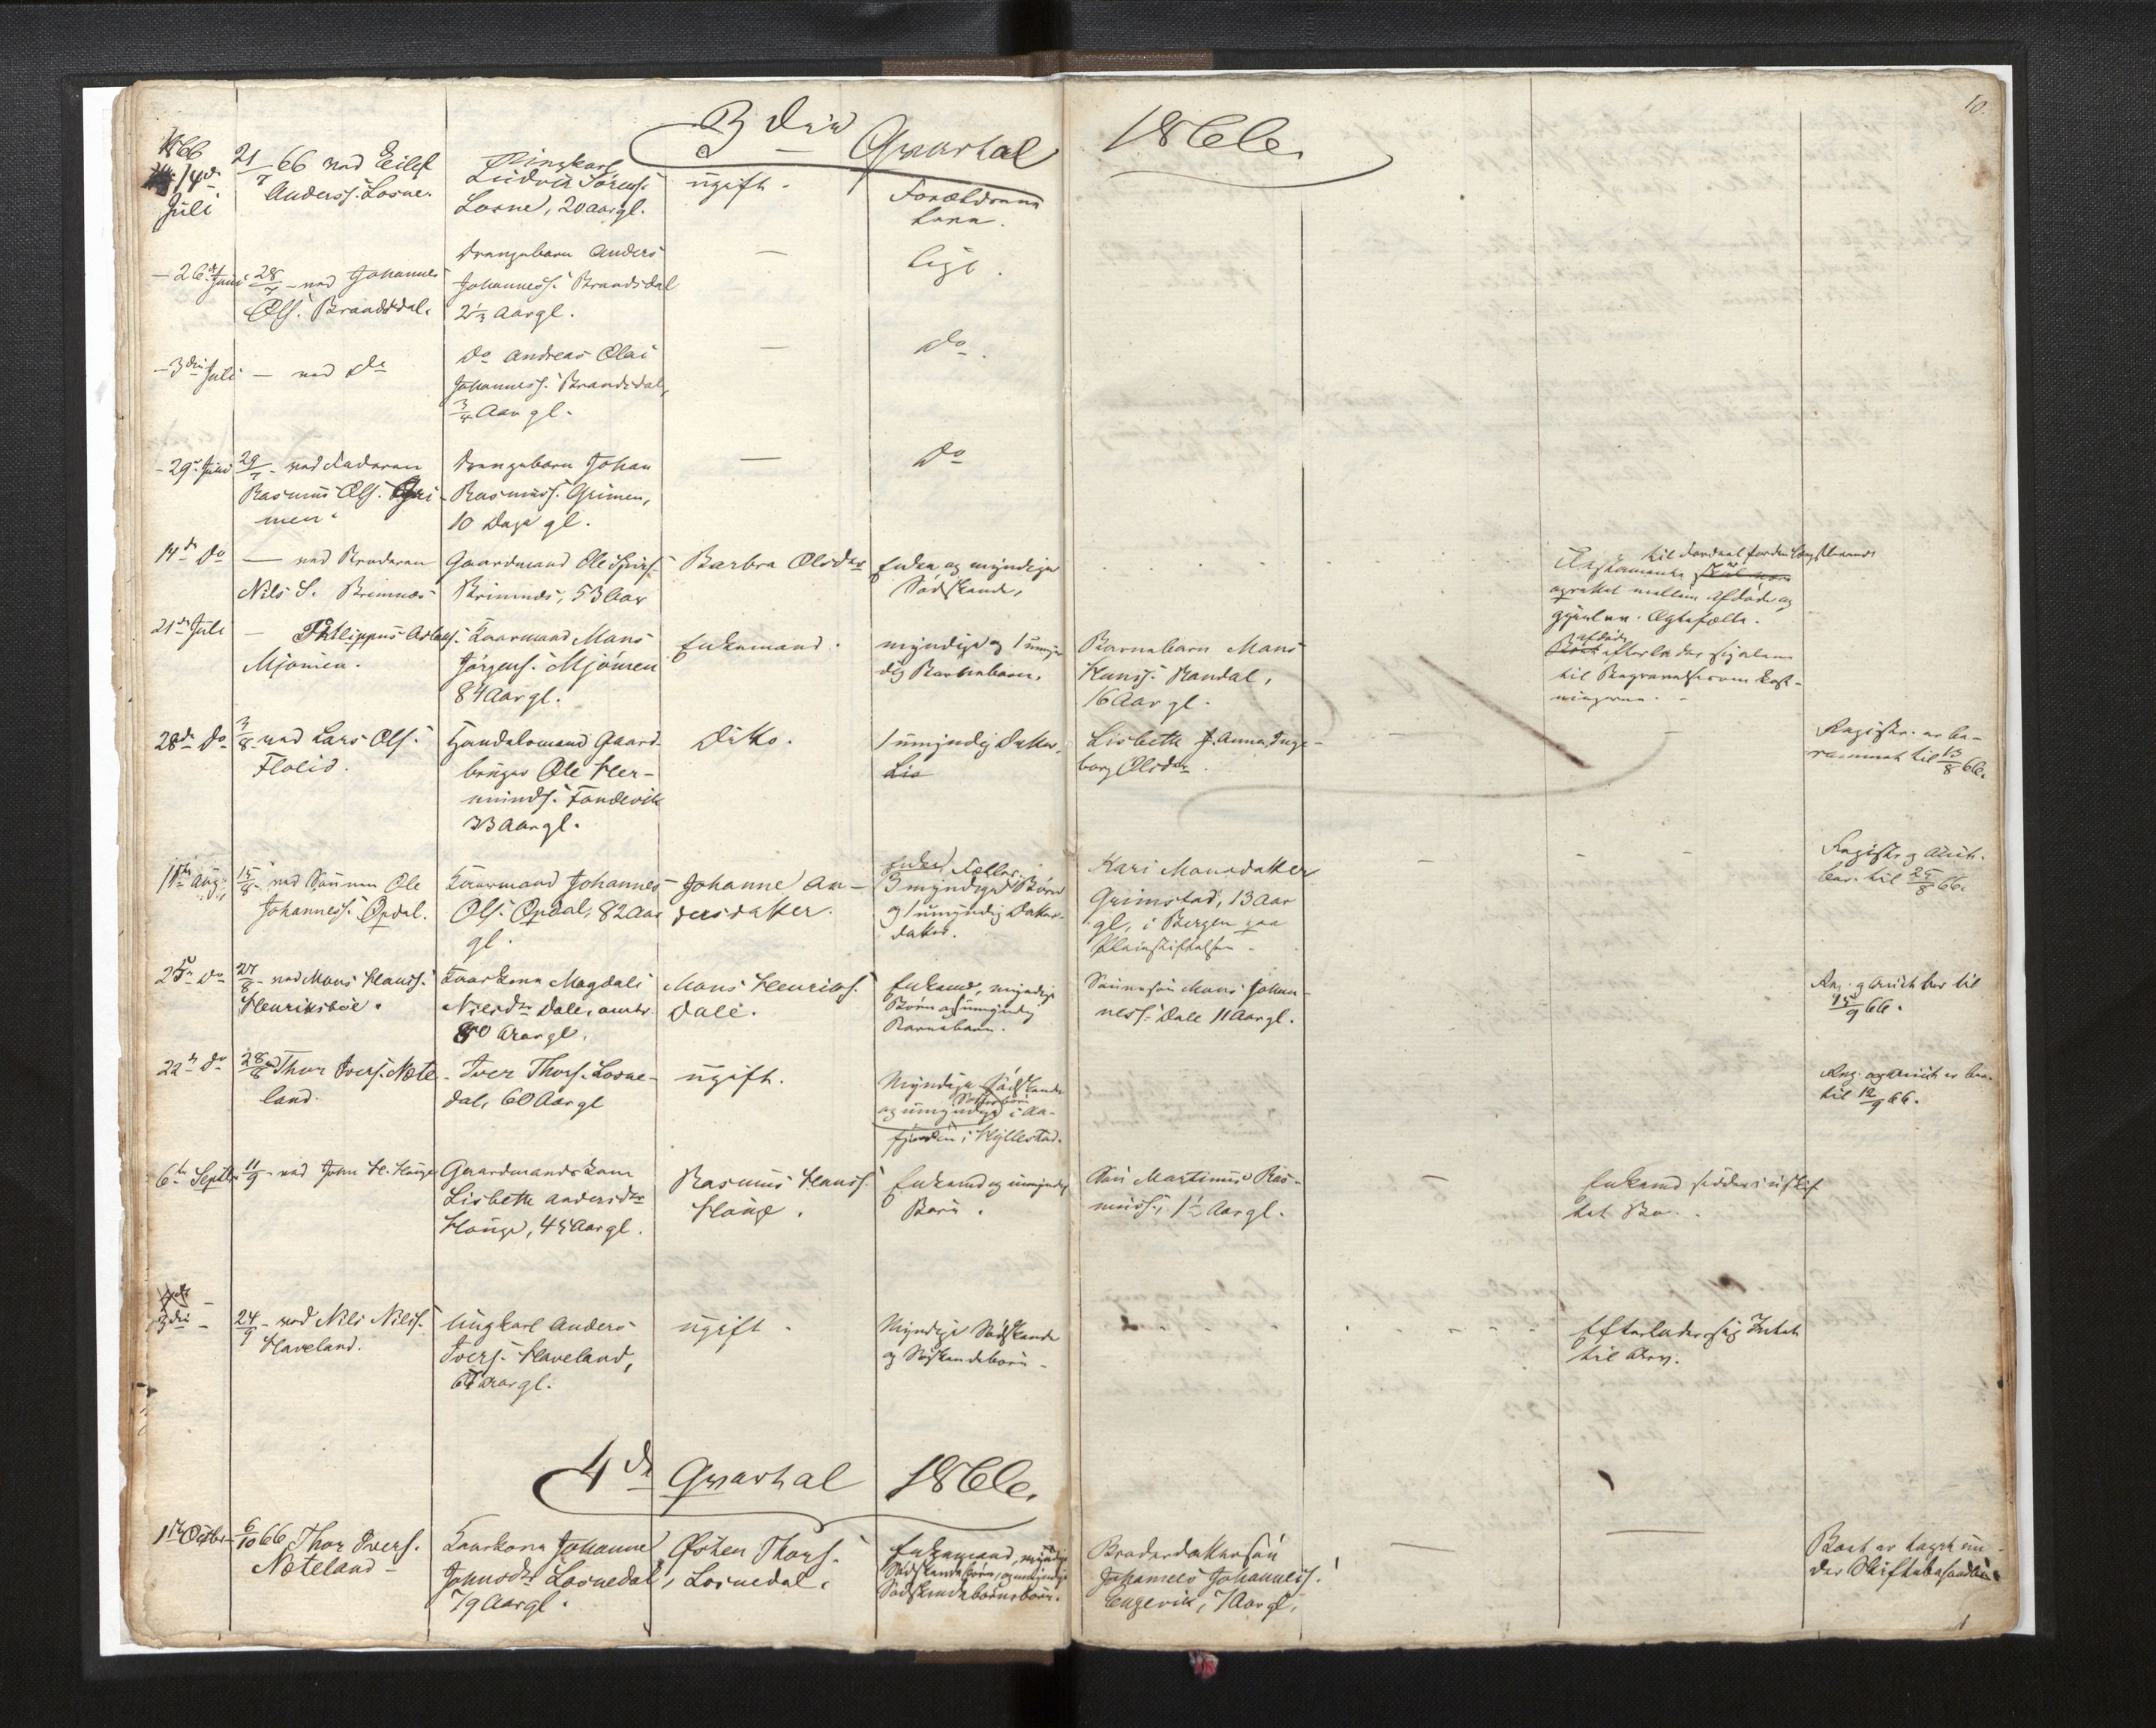 10.
3die Qvartal 1866.
1866
14de
Juli
21/7 66 ved Eilef
Anderss. Losne.
Pigekarl
Ludvik Sørens.
Losne, 20 aar gl.
ugift.
Forældrene
- 26de Juni
28/7 - ved Johannes
Ols. Brandsdal.
Drengebarn Anders
Johanness. Brandsdal
2½ Aar gl.
—
lige.
- 3die Juli
— ved do
do Andreas Olai
Johanness. Brandsdal,
3/4 Aar gl.
—
do.
- 29de Juni
29/7 - ved Faderen
Rasmus Ols. Gri-
men.
Drengebarn Johan
Rasmuss. Grimen,
10 Dage gl.
—
do
14de do
— ved Broderen
Nils S. Brimnæs
Gaardmand Ole
Brimnæs, 53 Aar
Barbra Olsdtr
Enken og myndige
Sødskende,
til Fordeel for den Længstlevende
Testamente
oprettet mellem Afdøde og
gjenlev. Ægtefælle.
21de Juli
— Phillippus
Mjømen.
Kaarmand Mons
Jørgens. Mjømen
84 Aar gl.
Enkemand.
myndige og 1 umyn-
dig Barnebarn.
Barnebarn Mons
Hanss. Randal,
16 Aar gl.
afdøde
efterlader sig alene
til Begravelsesomkost-
ningerne.
28de do
3/8 - ved Lars Ols.
Flolid.
Handelsmand Gaard-
bruger Ole Her-
munds. Tandevik
33 Aar gl.
Ditto.
1 umyndig Datter.
Lis
Lisbeth J. Anna Inge-
borg Olsdtr.
Registr. er be-
rammet til 15/8 66.
11te Aug.
15/8 - ved Sønnen Ole
Johanness. Opdal.
Kaarmand Johannes
Ols. Opdal, 82 Aar
gl.
Johanne An-
dersdatter.
3 myndige Børn
og 1 umyndig Datter-
datter.
Kari Monsdatter
Grimstad, 13 Aar
gl., i Bergen paa
Pleiestiftelsen.
Registr. og Auct.
ber. til 25/8 66.
25de do
27/8 - ved Mons Hanss.
Henriksbøe.
Kaarkone Magdali
Nilsdtr Dale, omtr.
80 Aar gl.
Mons Henriks.
Dale.
Enkemd, myndige
Børn og umyndig
Barnebarn.
Sønnesøn Mons Johan-
ness. Dale 11 Aar gl.
Reg. og Auct. ber. til
15/9 66.
22de do
28/8 Thor Ivers. Nøte-
land.
Iver Thors. Losne-
dal, 60 Aar gl
ugift.
Myndige Sødskende
og umyndige i Aa-
fjorden i Hyllestad.
Reg. og Auct. er ber.
til 12/9 66.
6te Septbr.
11/9 - ved John H. Hauge
Gaardmandskone
Lisbeth Andersdtr
Hauge, 45 Aar gl.
Rasmus Hanss.
Hauge.
Enkemd og umyndige
Børn.
Søn Martinus Ras-
muss., 1½ Aar gl.
—
Enkemd sidder i uskif-
tet Bo.
3die -
24/9 - ved Nils Nilss.
Haveland.
Ungkarl Anders
Ivers. Haveland,
Aar gl.
ugift.
Myndige Sødskende
og Sødskendebørn.
Efterlader sig Intet
til Arv.
4de Qvartal 1866.
1ste Octbr.
6/10 66 Thor Ivers.
Nøteland
Kaarkone Johanne
Johnsdtr Losnedal,
79 Aar gl.
Østen Thors.
Losnedal.
Enkemand, myndige
Sødskendebørn, og umyndige
Sødskendebørnsbørn.
Broderdattersøn
Johannes Johanness.
Engevik, 7 Aar gl.
—
Boet er taget un-
der Skiftebehandling